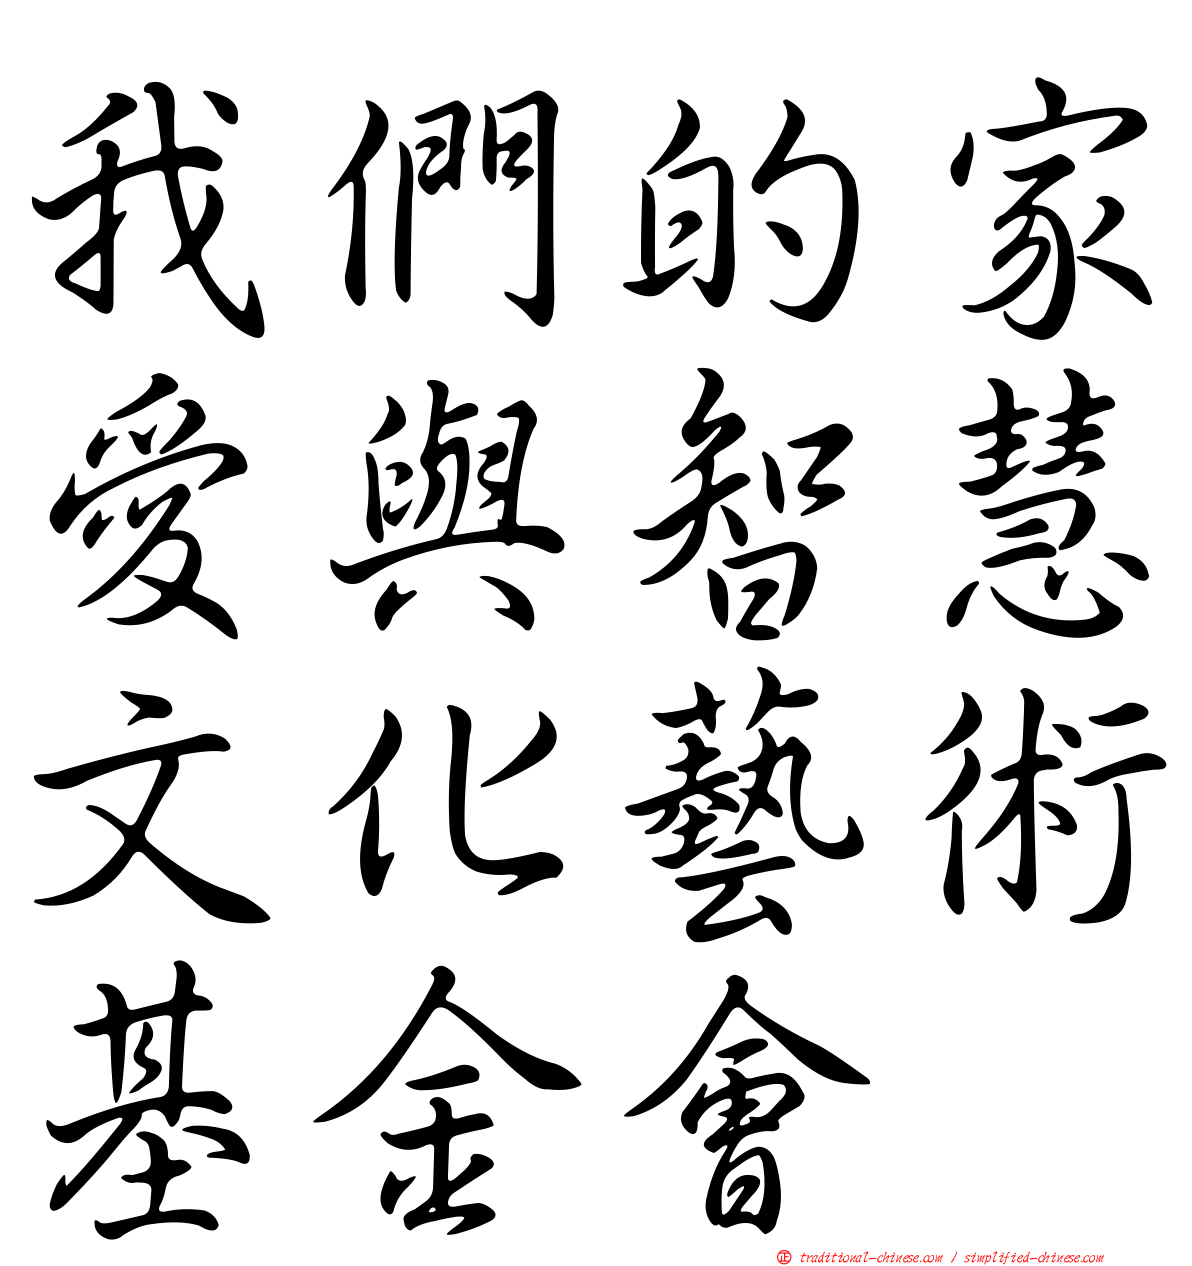 我們的家
愛與智慧
文化藝術
基金會
㊣ traditional-chinese.com / simplified-chinese.com